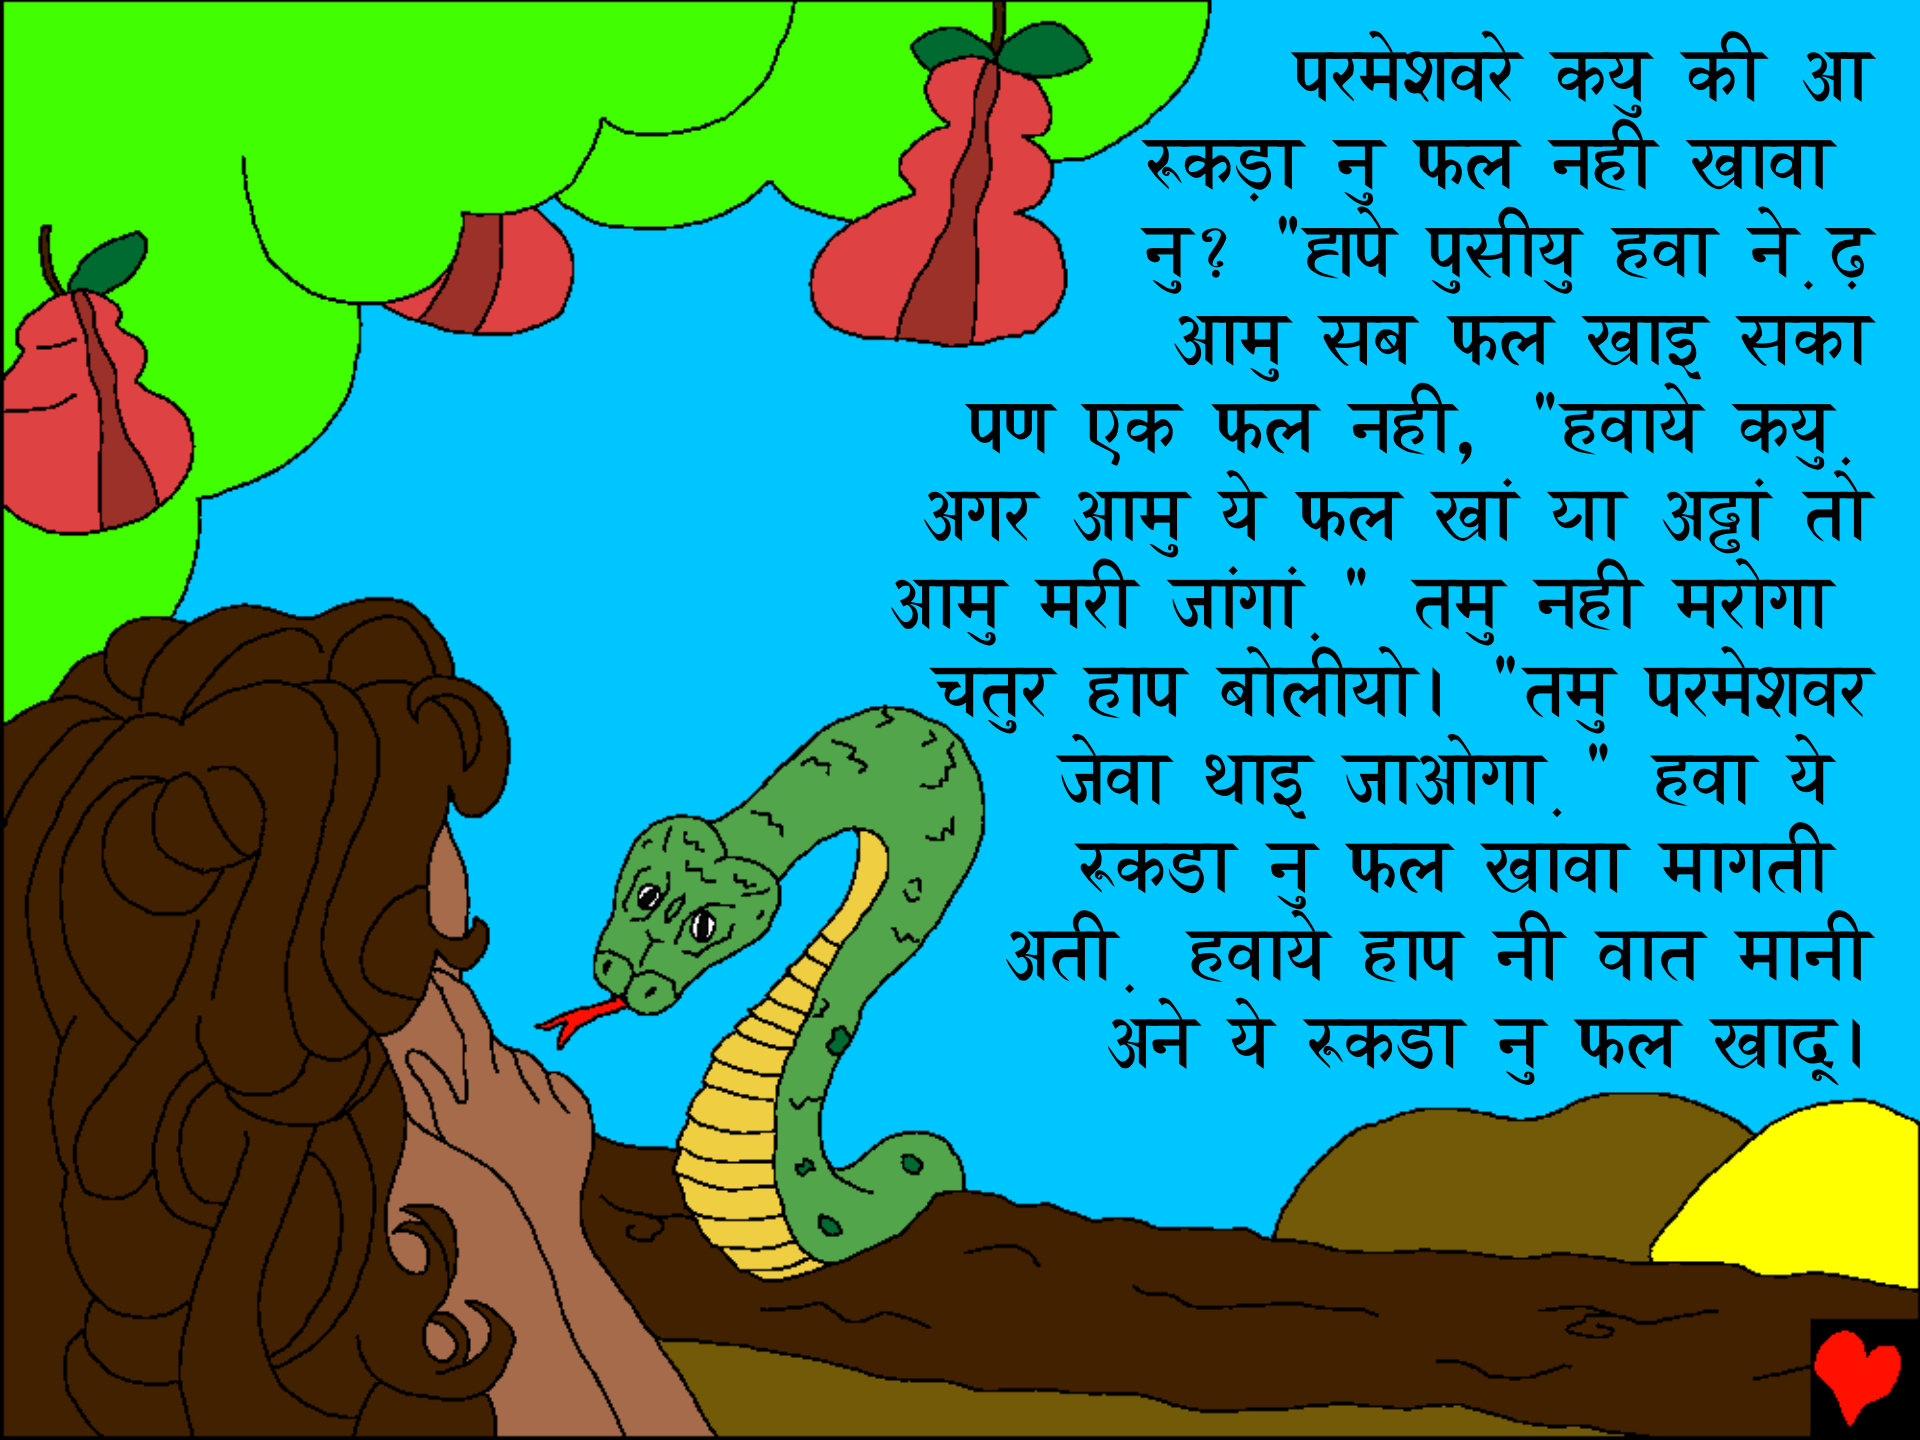 परमेशवरे कयु की आ
रूकड़ा नु फल नही खावा
नु? "हापे पुसीयु हवा ने.ढ़
आमु सब फल खाइ सका
पण एक फल नही, "हवाये कयु.
अगर आमु ये फल खां या अड्ढां तो
आमु मरी जांगां." तमु नही मरोगा
चतुर हाप बोलीयो। "तमु परमेशवर
जेवा थाइ जाओगा." हवा ये
रूकडा नु फल खावा मागती
अती. हवाये हाप नी वात मानी
अने ये रूकडा नु फल खाद्।